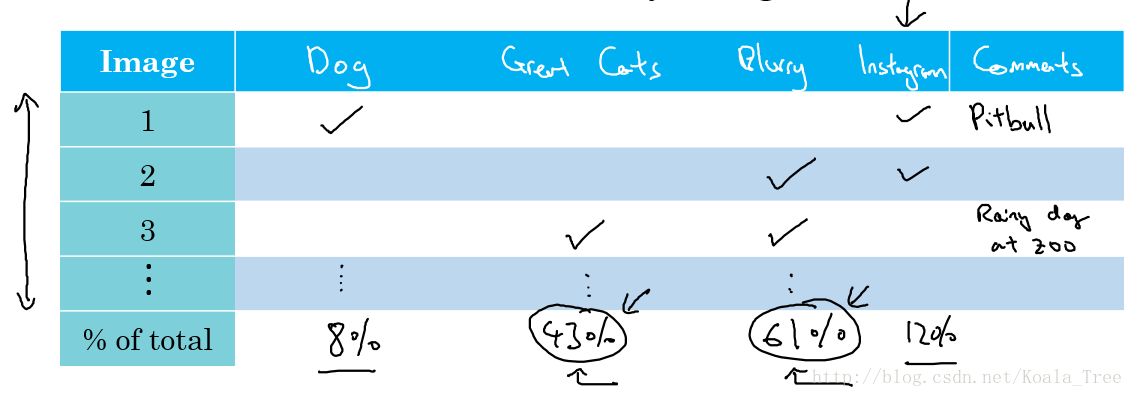 Image Dog Great Cats Blurry Instagram Comments
1 ✓ ✓ Pitbull
2 ✓ ✓
3 ✓ ✓ Rainy day
at zoo
⋮ ⋮ ⋮ ⋮
% of total 8% 43% 61% 12%
http://blog.csdn.net/Koala_Tree